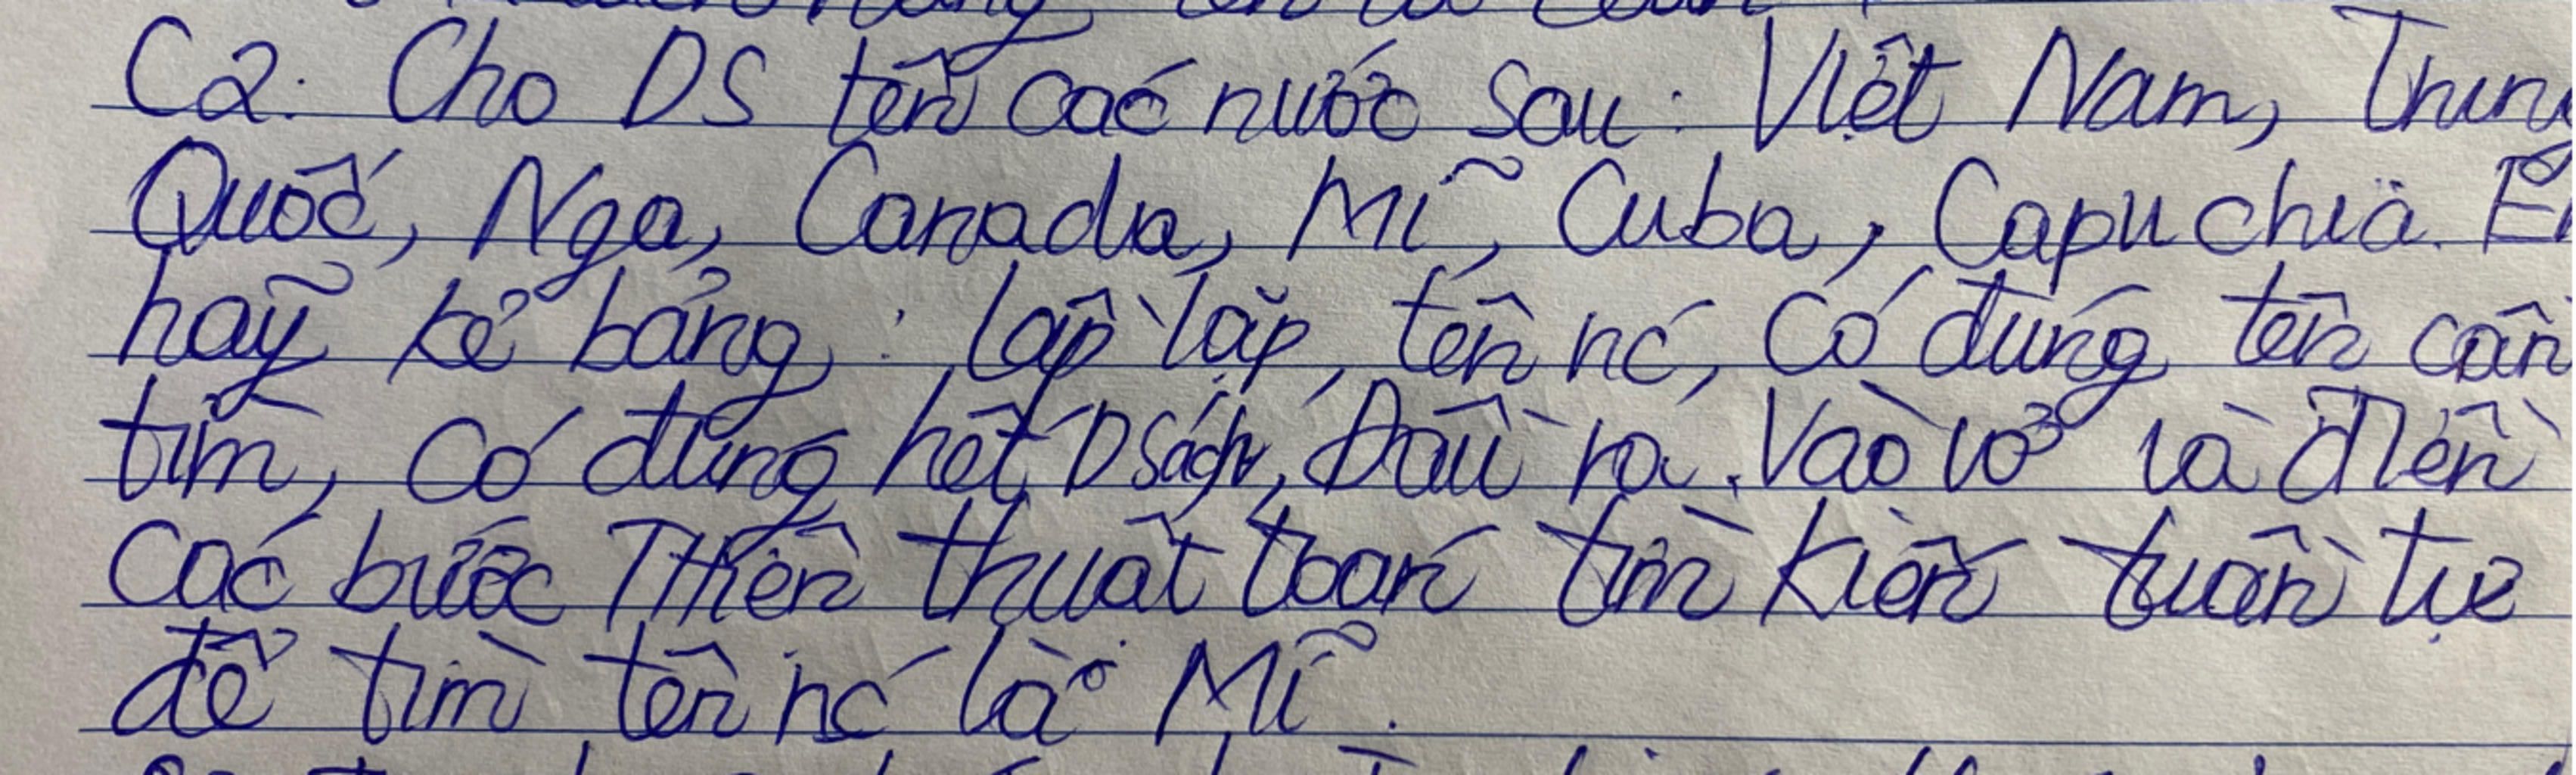 C2. Cho DS tên các nước sau: Việt Nam, Trung
Quốc, Nga, Canada, Mĩ, Cuba, Capuchia. E
hãy kẻ bảng: lặp lặp, tên nc, có đúng tên cần
tìm, có đúng hết DSách, Đầu ra. Vào vở và điền
các bước THiện thuật toán tìm kiến tuần tự
để tìm tên nc là Mĩ.